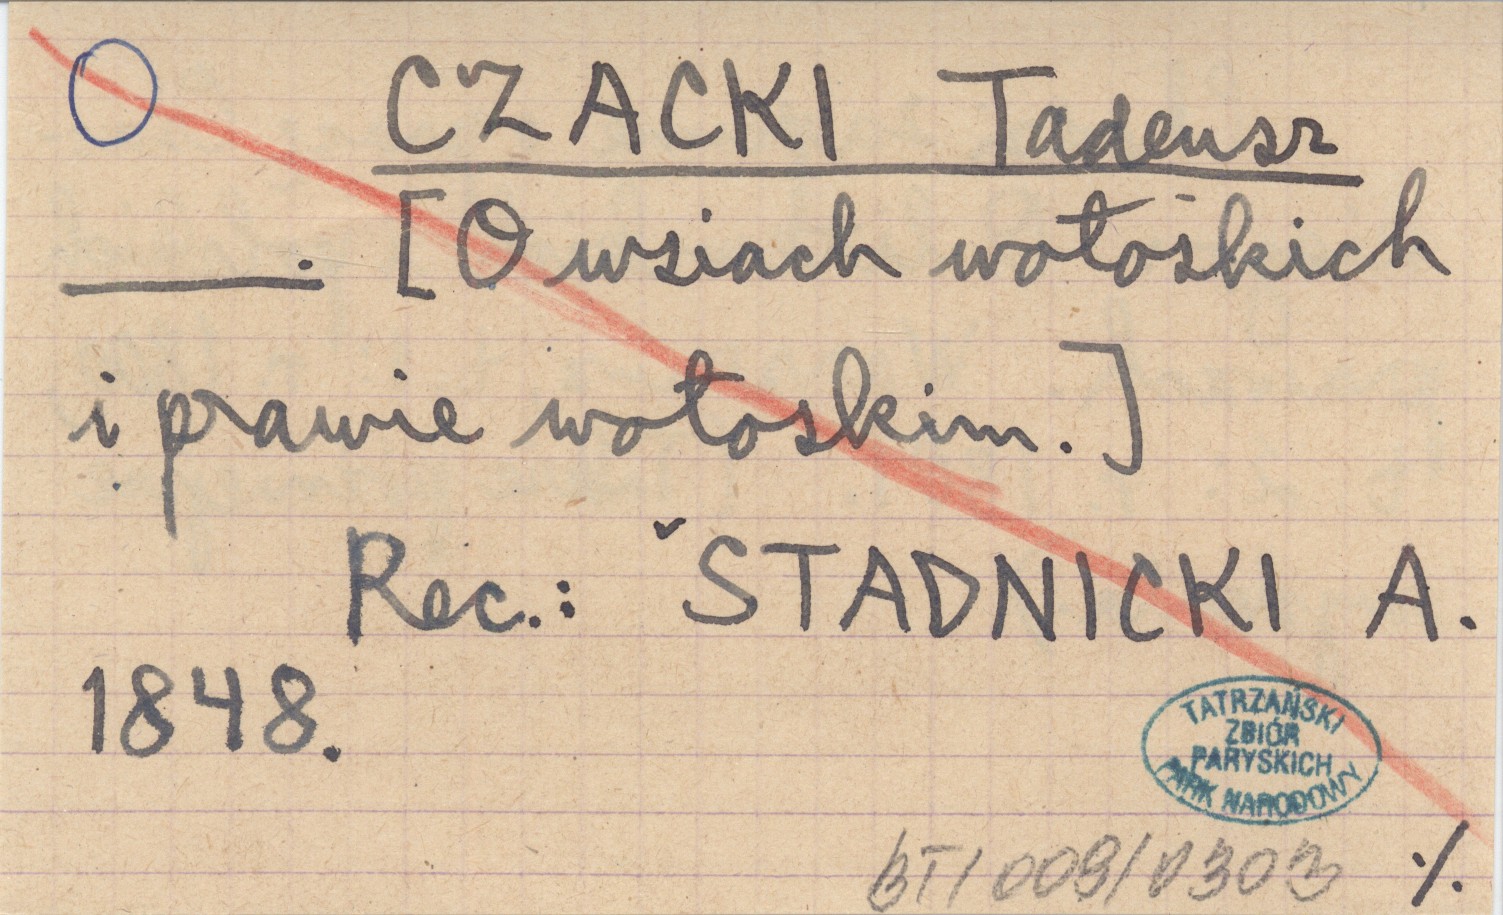 O CZACKI Tadeusz
———. [O wsiach wołoskich
i prawie wołoskim.]
Rec.: ˇSTADNICKI A.
1848.
TATRZAŃSKI
ZBIÓR
PARYSKICH
PARK NARODOWY
BT/009/0303 ·/.